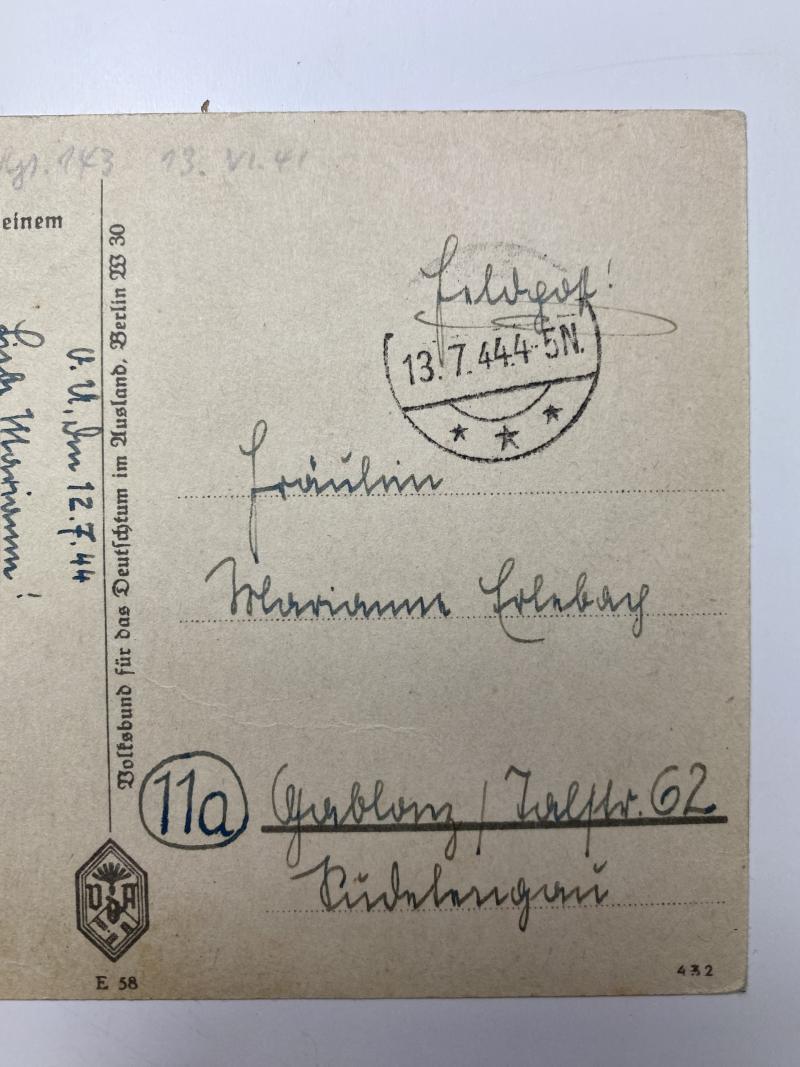 143 13. VI. 41
einem
O.U., den 12.7.44
Liebe Marianne!
Volksbund für das Deutschtum im Ausland, Berlin W 30
Feldpost!
13.7.44.4-5N.
Fräulein
Marianne Erlebach
11a Gablonz / Talstr. 62
Sudetengau
VDA
E 58
432